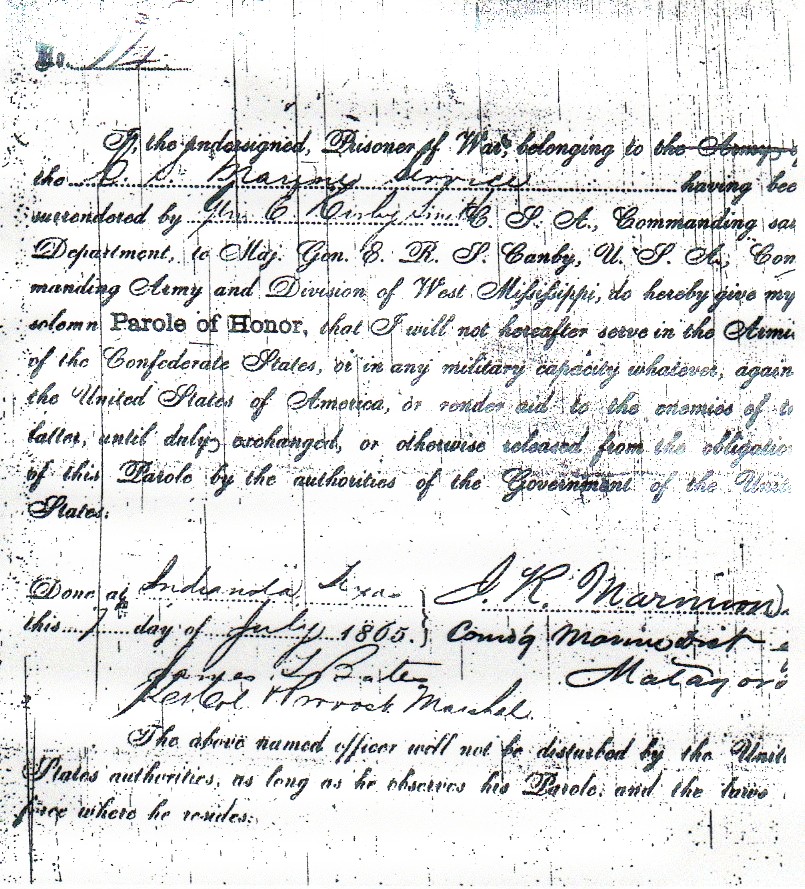 No. 114
I, the undersigned, Prisoner of War, belonging to the Army
the C. S. Marine Service having bee
surrendered by Gn E Kirby Smith C. S. A., Commanding sai
Department, to Maj. Gen. E. R. S. Canby, U. S. A., Com
manding Army and Division of West Mississippi, do hereby give my
solemn Parole of Honor, that I will not hereafter serve in the Armi
of the Confederate States, or in any military capacity whatever, again
the United States of America, or render aid to the enemies of t
latter, until duly exchanged, or otherwise released from the obligatio
of this Parole by the authorities of the Government of the Unit
States.
Done at Indianola Texas
this 7 day of July 1865.
J. K. Marmion
Comd'g Marine Dist
Matagor
James L Bates
Lt Col & Provost Marshal.
The above named officer will not be disturbed by the Unit
States authorities, as long as he observes his Parole, and the laws
force where he resides.